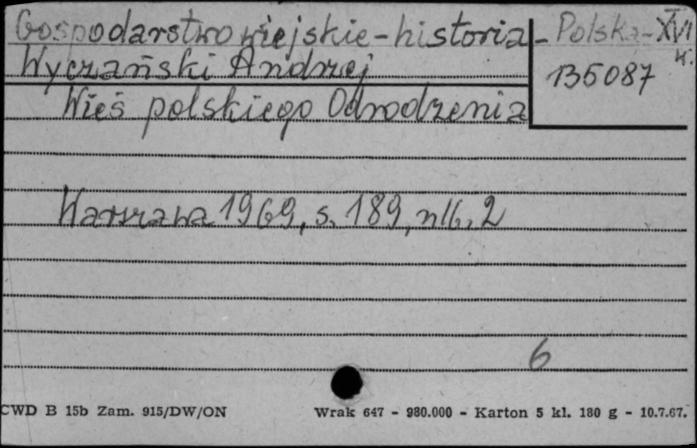 Gospodarstwo wiejskie - historia - Polska - XVI w.
Wyczański Andrzej
135087
Wieś polskiego Odrodzenia
Warszawa 1969, s. 189, nlb. 2
6
CWD B 15b Zam. 915/DW/ON Wrak 647 - 980.000 - Karton 5 kl. 180 g - 10.7.67.